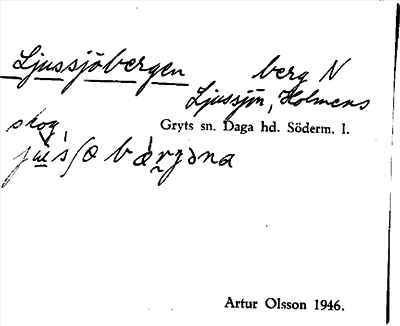 Ljussjöbergen berg N
Ljussjön, Holmens
skog,
Gryts sn. Daga hd. Söderm. l.
Artur Olsson 1946.